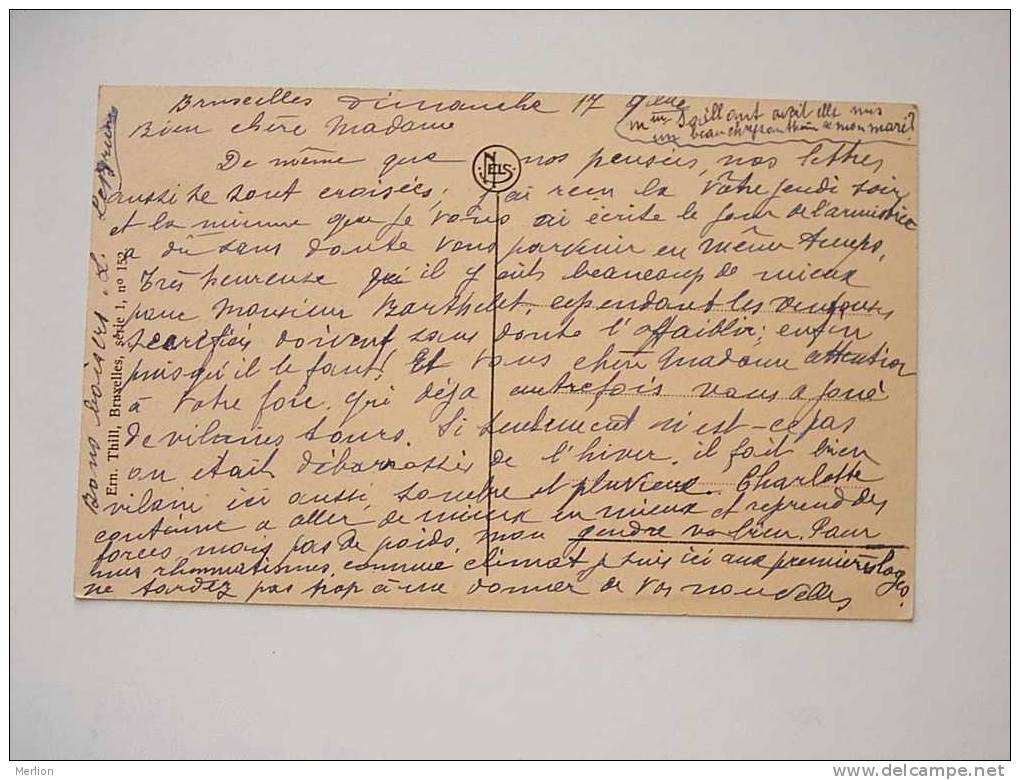 Bruxelles dimanche 17 9bre
Mme Taillant avait elle mis
un beau chrysanthème de mon mari?
Bien chère Madame
De même que nos pensées, nos lettres
NELS
aussi se sont croisées; j'ai reçu la vôtre jeudi soir
et la mienne que je vous ai écrite le jour de l'armistice
a dû sans doute vous parvenir en même temps,
Très heureuse qu'il y ait beaucoup de mieux
pour Monsieur Barthelet, cependant les ventouses
scarifiées doivent sans doute l'affaiblir; enfin
puisqu'il le faut! Et vous chère Madame attention
à votre foie, qui déjà autrefois vous a joué
de vilains tours. Si seulement n'est-ce pas
on était débarrassés de l'hiver, il fait bien
vilain ici aussi, sombre et pluvieux. Charlotte
continue à aller de mieux en mieux et reprend des
forces, mais pas de poids, mon gendre va bien. Pour
mes rhumatismes, comme climat je suis ici aux premières loges.
ne tardez pas trop à me donner de vos nouvelles
Bons baisers. L. Lebrun
Ern. Thill, Bruxelles, série 1, no 152
Merlion
www.delcampe.net